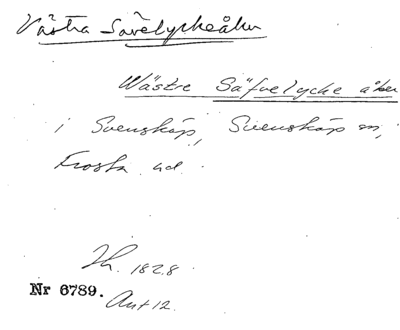 Västra Sävelyckeåker
Wästre Säfvelycke åker
i Svensköp, Svensköp sn,
Frosta hd.
Lh. 1828
Nr 6789.
Akt 12.